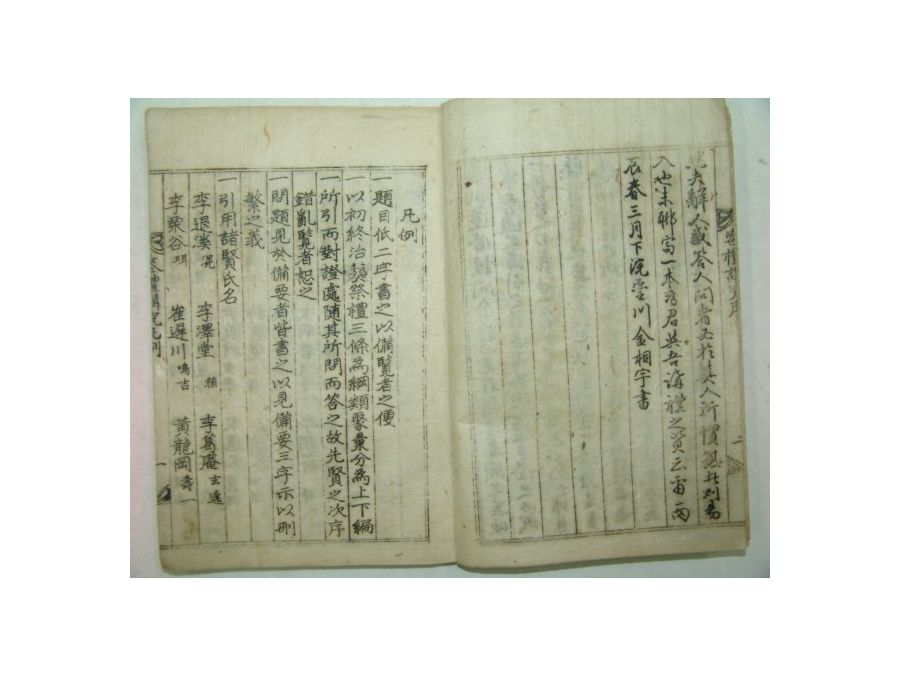 夫解人或答人問者至於其人所慣
入也未聊寫一本爲君與吾講禮之資云爾丙
辰春三月下浣 川金相宇書
凡例
一題目低二字書之以備覽者之便
一以初終治葬祭禮三條爲綱類聚彙分爲上下編
一所引而對證處隨其所問而答之故先賢之次序
錯亂覽者恕之
一問題見於備要者皆書之以見備要三字示以刪
繁之義
一引用諸賢氏名
李退溪滉 李澤堂植 李葛庵玄逸
李栗谷珥 崔遲川鳴吉 黃龍岡壽一